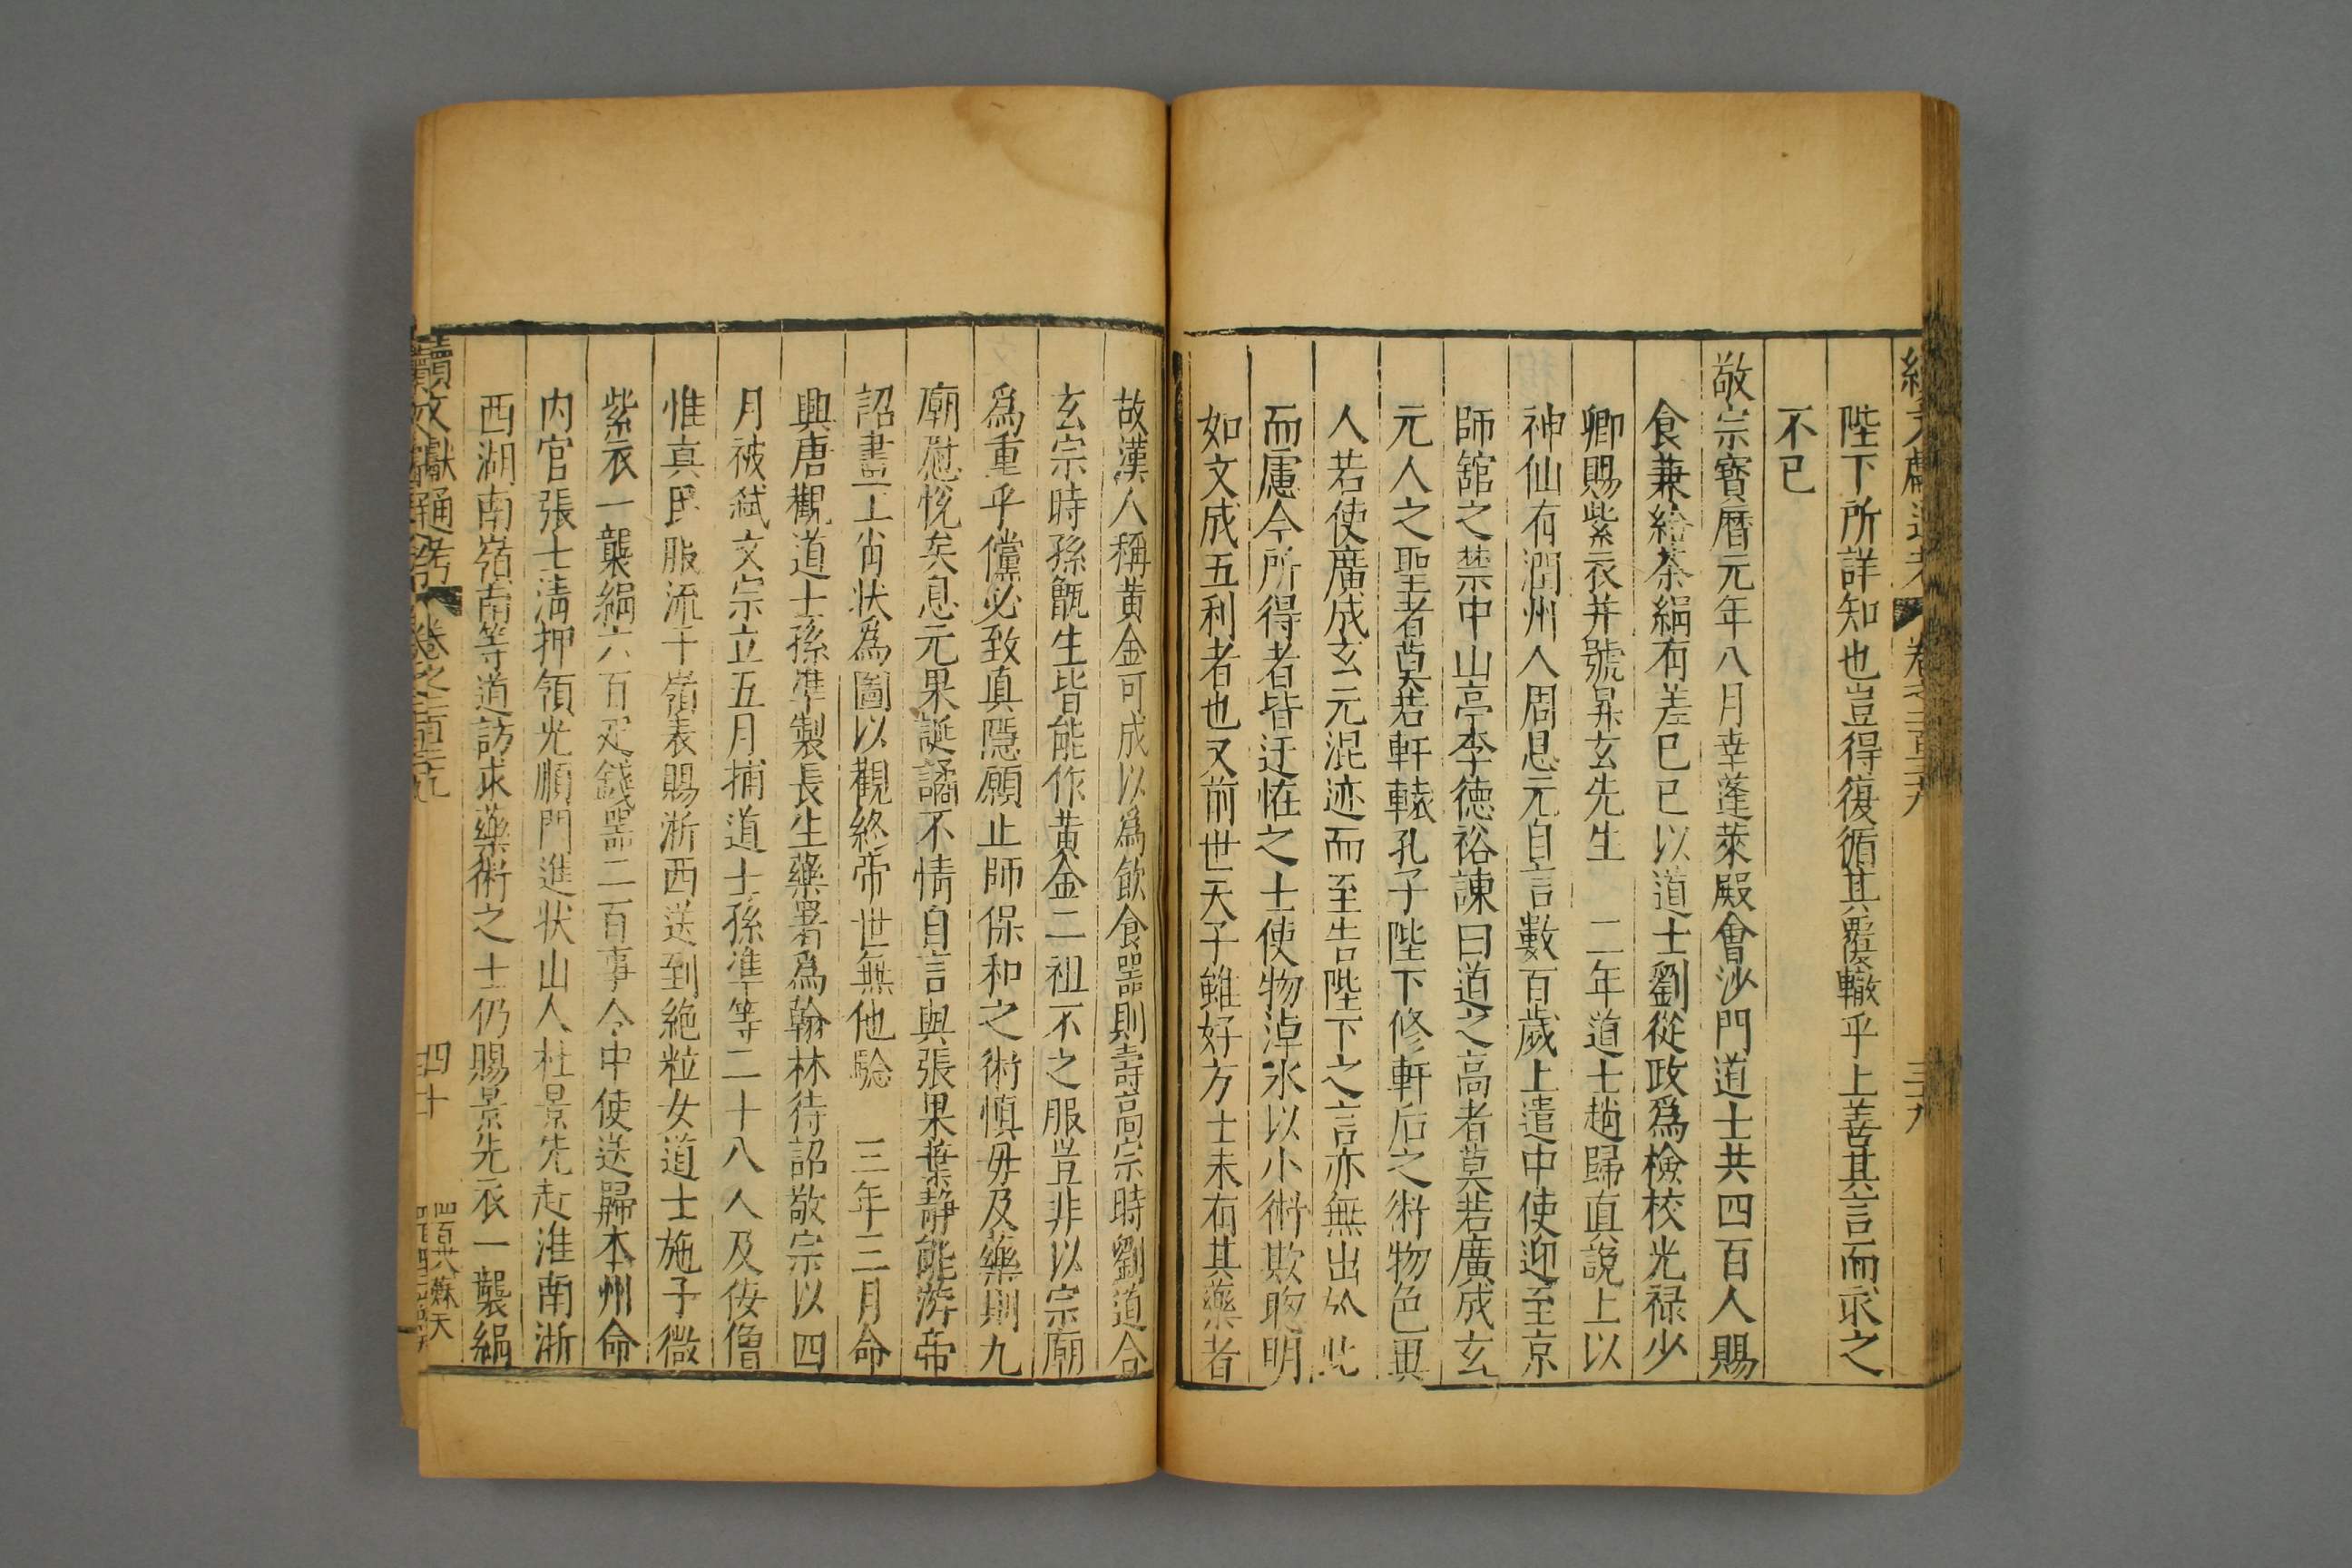 陛下所詳知也豈得復循其覆轍乎上善其言而求之
不已
敬宗寶曆元年八月幸蓬萊殿會沙門道士共四百人賜
食兼給茶絹有差已已以道士劉從政爲檢校光禄少
卿賜紫衣并號昇玄先生 二年道士趙歸真說上以
神仙有潤州人周息元自言數百歲上遣中使迎至京
師舘之禁中山亭李德裕諫曰道之高者莫若廣成玄
元人之聖者莫若軒轅孔子陛下修軒后之術物色異
人若使廣成玄元混迹而至告陛下之言亦無出於此
而慮今所得者皆迂怪之士使物淖氷以小術欺聦明
如文成五利者也又前世天子雖好方士未有其藥者
故漢人稱黄金可成以爲飲食器則壽高宗時劉道合
玄宗時孫甑生皆能作黄金二祖不之服豈非以宗廟
爲重乎儻必致真隱願止師保和之術慎毋及藥則九
廟慰悅矣息元果誕譎不情自言與張果葉静能游帝
詔畫工肖状爲圖以觀終帝世無他驗 三年三月命
興唐觀道士孫準製長生藥署爲翰林待詔敬宗以四
月被弑文宗立五月捕道士孫準等二十八人及佞僧
惟真民服流于嶺表賜浙西送到絶粒女道士施子微
紫衣一襲絹六百疋錢器二百事令中使送歸本州命
内官張士清押領光順門進状山人杜景先赴淮南浙
西湖南嶺南等道訪求藥術之士仍賜景先衣一襲絹
續文獻通考 卷之二百三九 四十